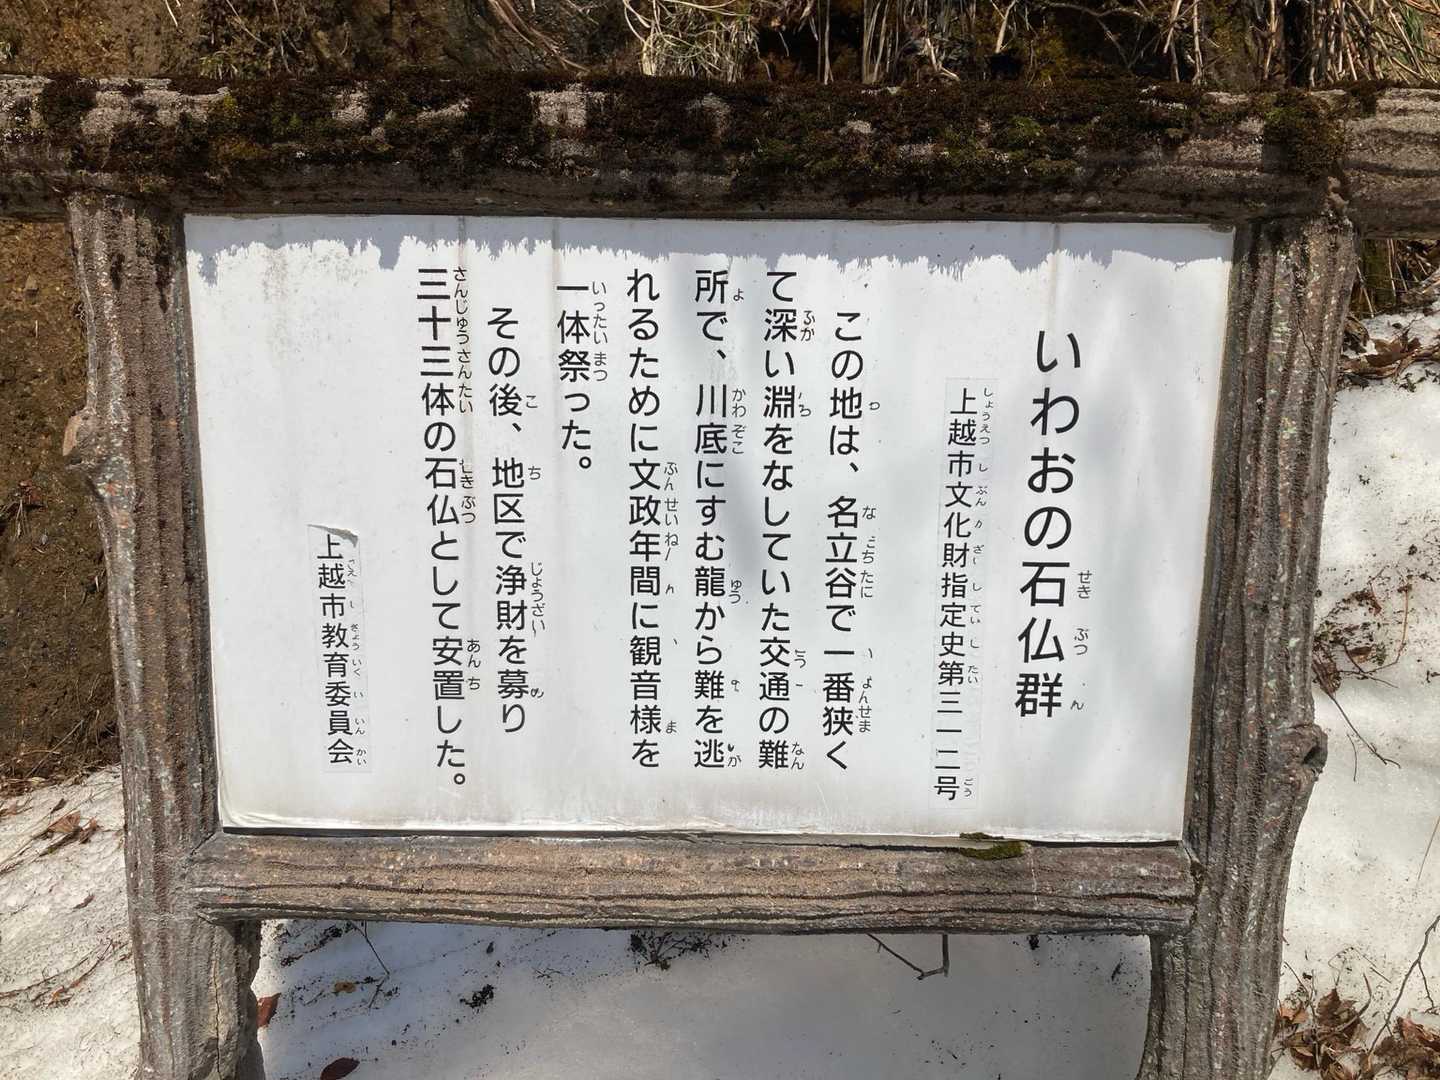 いわおの石仏群
上越市文化財指定史第三一二号
この地は、名立谷で一番狭く
て深い淵をなしていた交通の難
所で、川底にすむ龍から難を逃
れるために文政年間に観音様を
一体祭った。
その後、地区で浄財を募り
三十三体の石仏として安置した。
上越市教育委員会